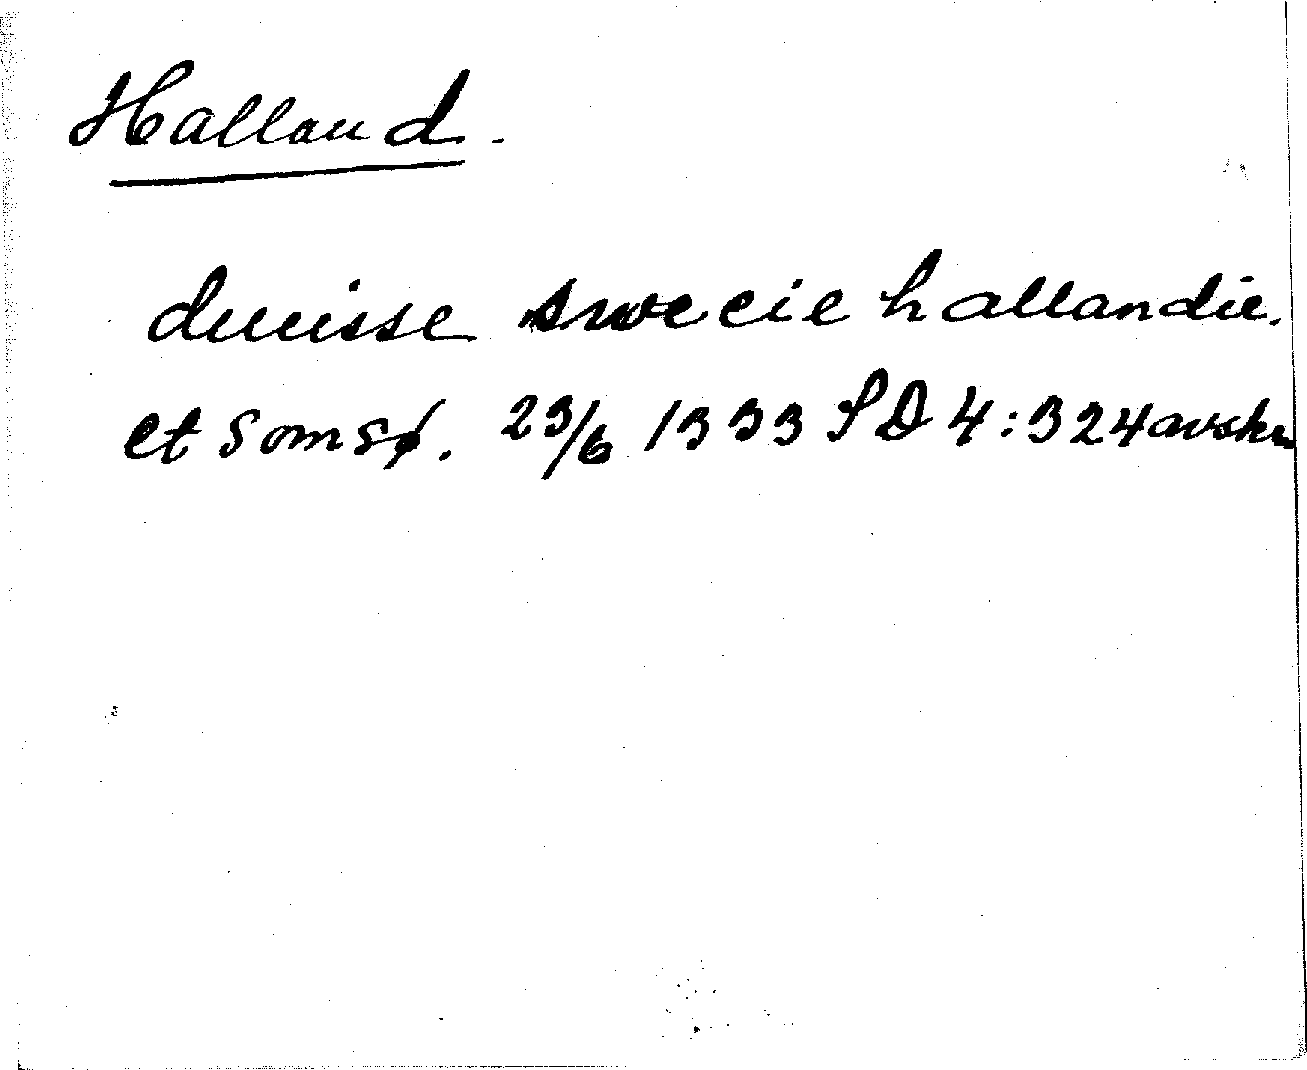 Halland.
ducisse swecie hallandie.
et somsø. 23/6 1333 SD 4:324 avskr